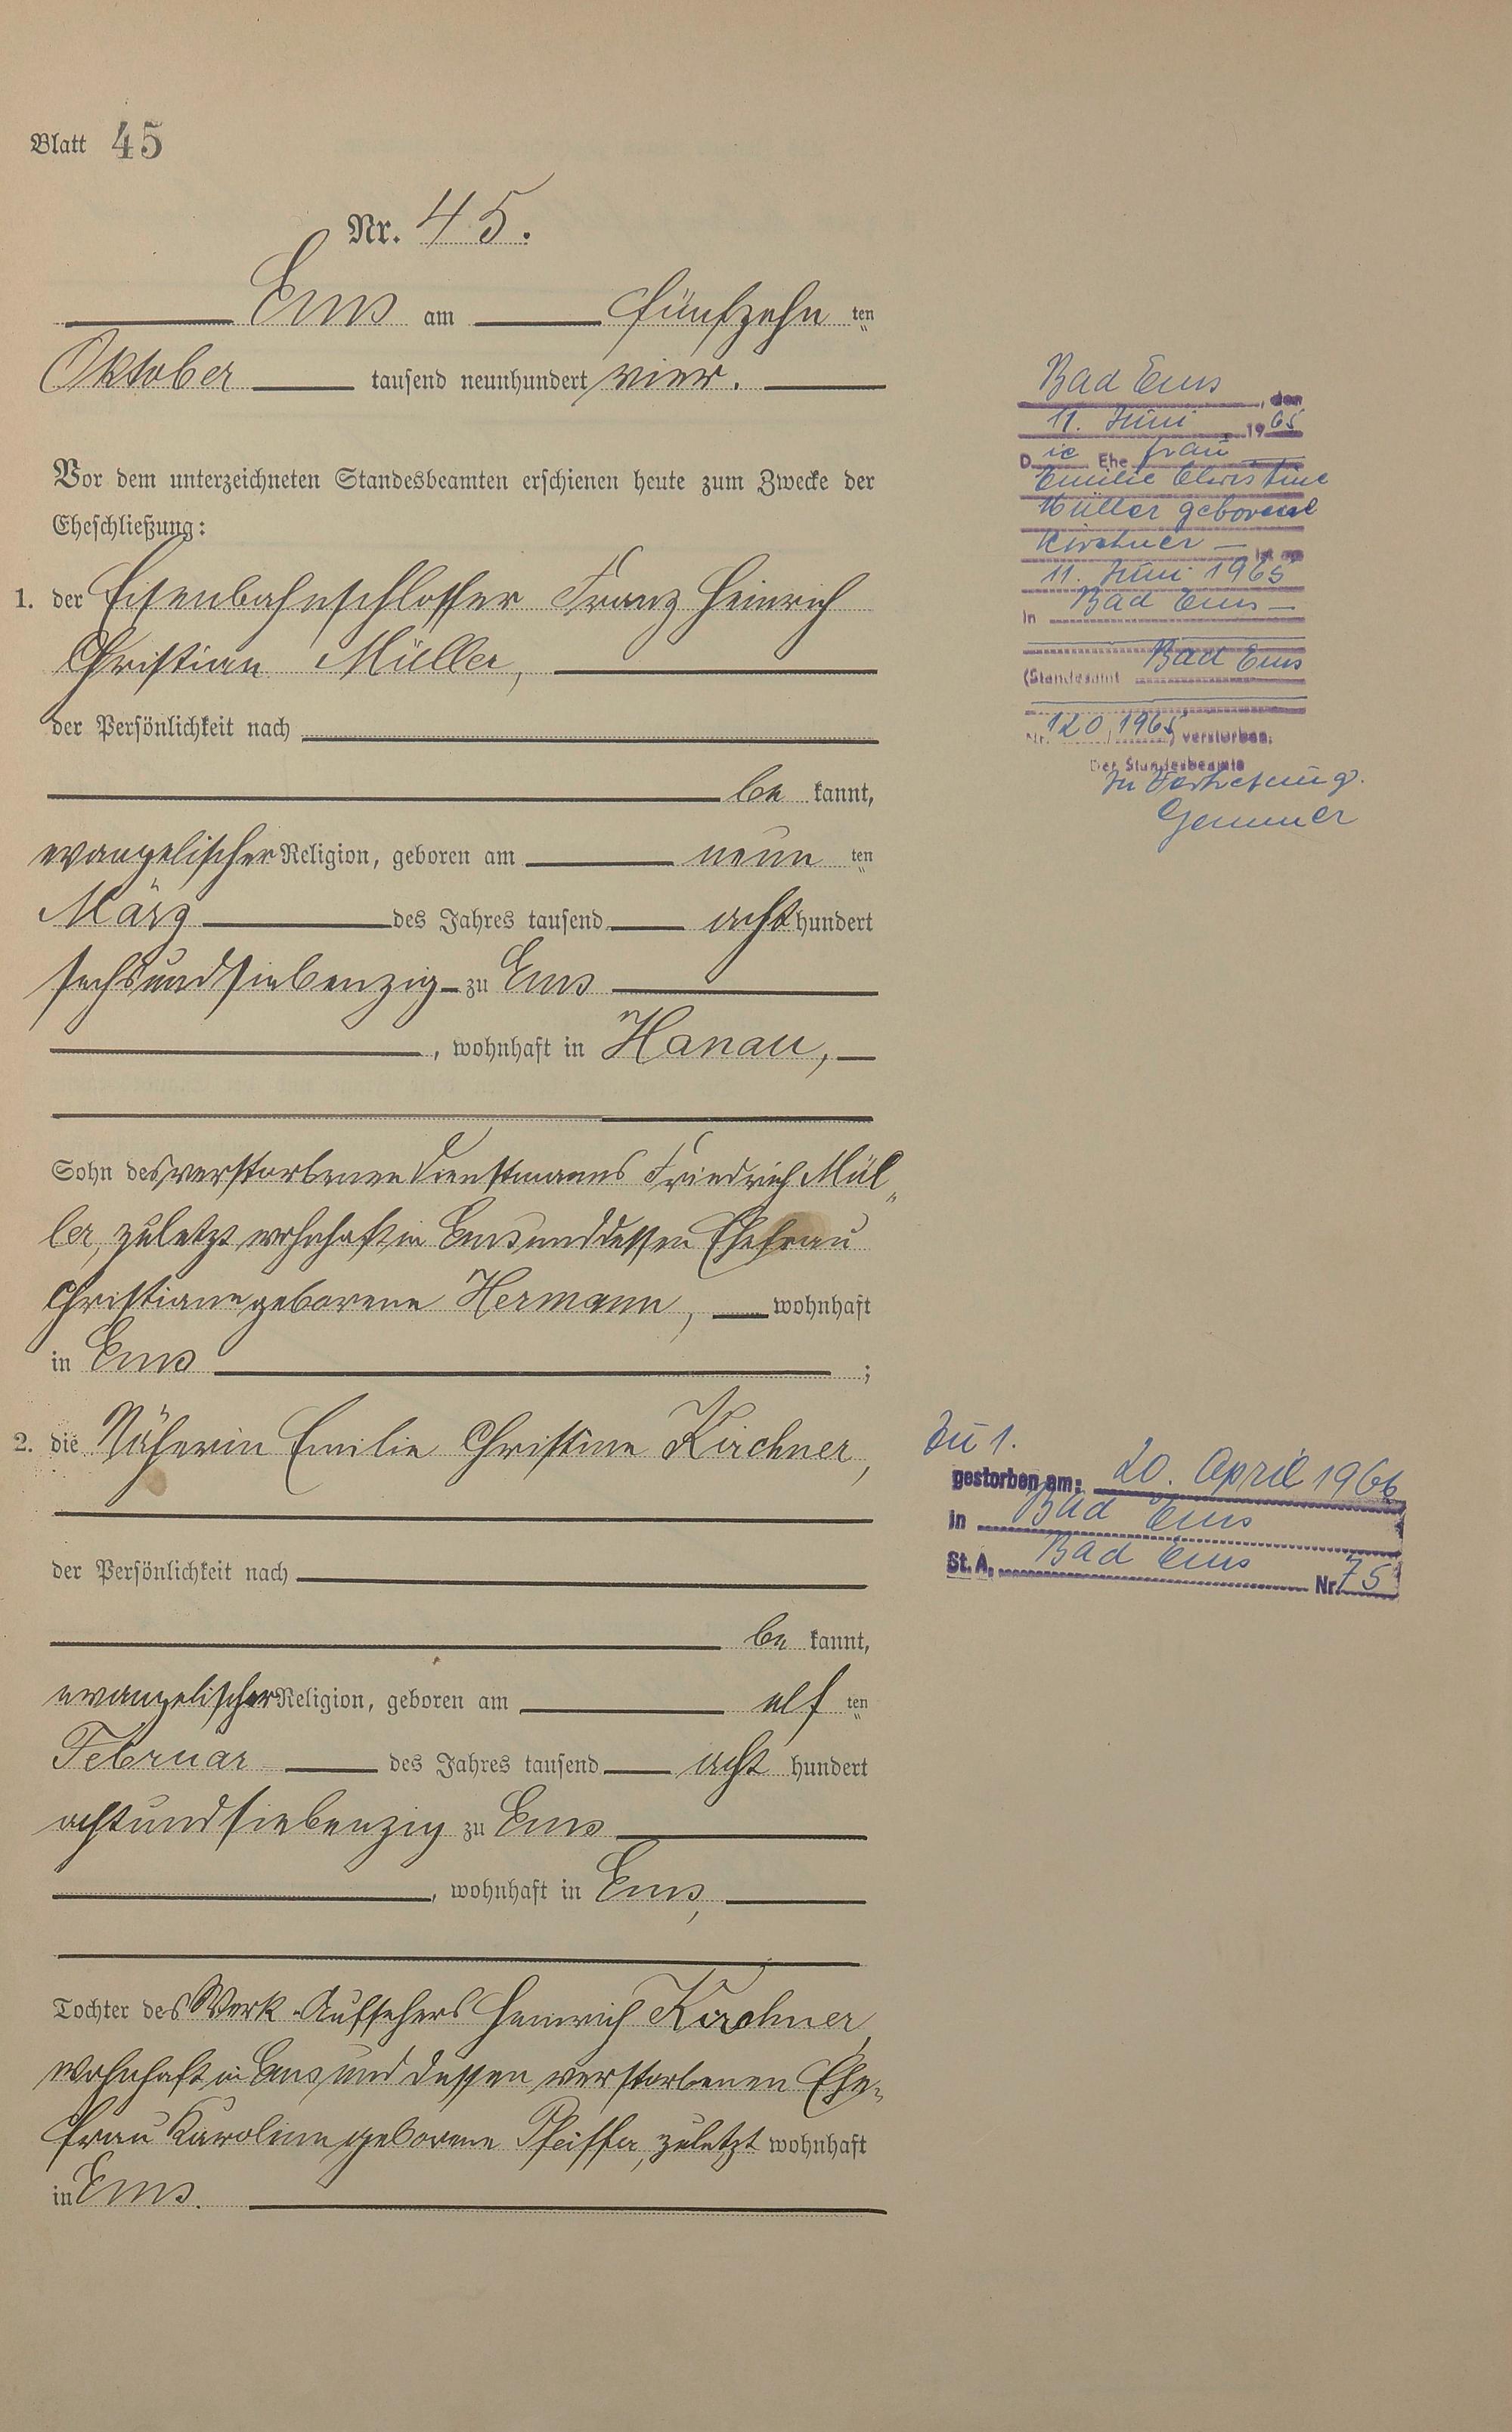 Blatt 45
Nr. 45.
Ems am fünfzehn ten
Oktober tausend neunhundert vier.
Vor dem unterzeichneten Standesbeamten erschienen heute zum Zwecke der
Eheschließung:
1. der Eisenbahnschlosser Franz Heinrich
Christian Müller,
der Persönlichkeit nach
be kannt,
evangelischer Religion, geboren am neun ten
März des Jahres tausend acht hundert
sechsundsiebenzig zu Ems
, wohnhaft in Hanau,
Sohn des verstorbenen Dienstmanns Friedrich Mül„
ler, zuletzt wohnhaft in Ems und dessen Ehefrau
Christiane geborene Hermann, wohnhaft
in Ems ;
2. die Näherin Emilie Christine Kirchner,
der Persönlichkeit nach
be kannt,
evangelischer Religion, geboren am elf ten
Februar des Jahres tausend acht hundert
achtundsiebenzig zu Ems
, wohnhaft in Ems,
Tochter des Werk-Aufsehers Heinrich Kirchner,
wohnhaft in Ems und dessen verstorbenen Ehe-
frau Karoline geborene Pfeiffer, zuletzt wohnhaft
in Ems.
Bad Ems, den
11. Juni 1965
Die Ehefrau
Emilie Christine
Müller geborene
Kirchner – ist am
11. Juni 1965
in Bad Ems –
(Standesamt Bad Ems
Nr. 120/1965) verstorben.
Der Standesbeamte
In Vertretung.
Gemmer
Zu 1.
gestorben am: 20. April 1966
in Bad Ems
St. A. Bad Ems Nr. 75